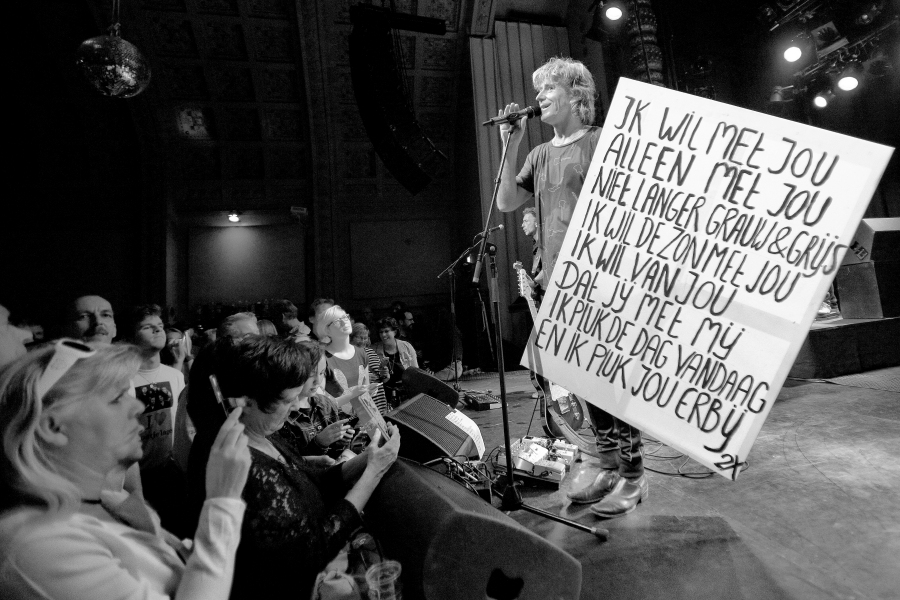 IK WIL MET JOU
ALLEEN MET JOU
NIET LANGER GRAUW & GRIJS
IK WIL DE ZON MET JOU
IK WIL VAN JOU
DAT JY MET MIJ
IK PLUK DE DAG VANDAAG
EN IK PLUK JOU ERBIJ
2X